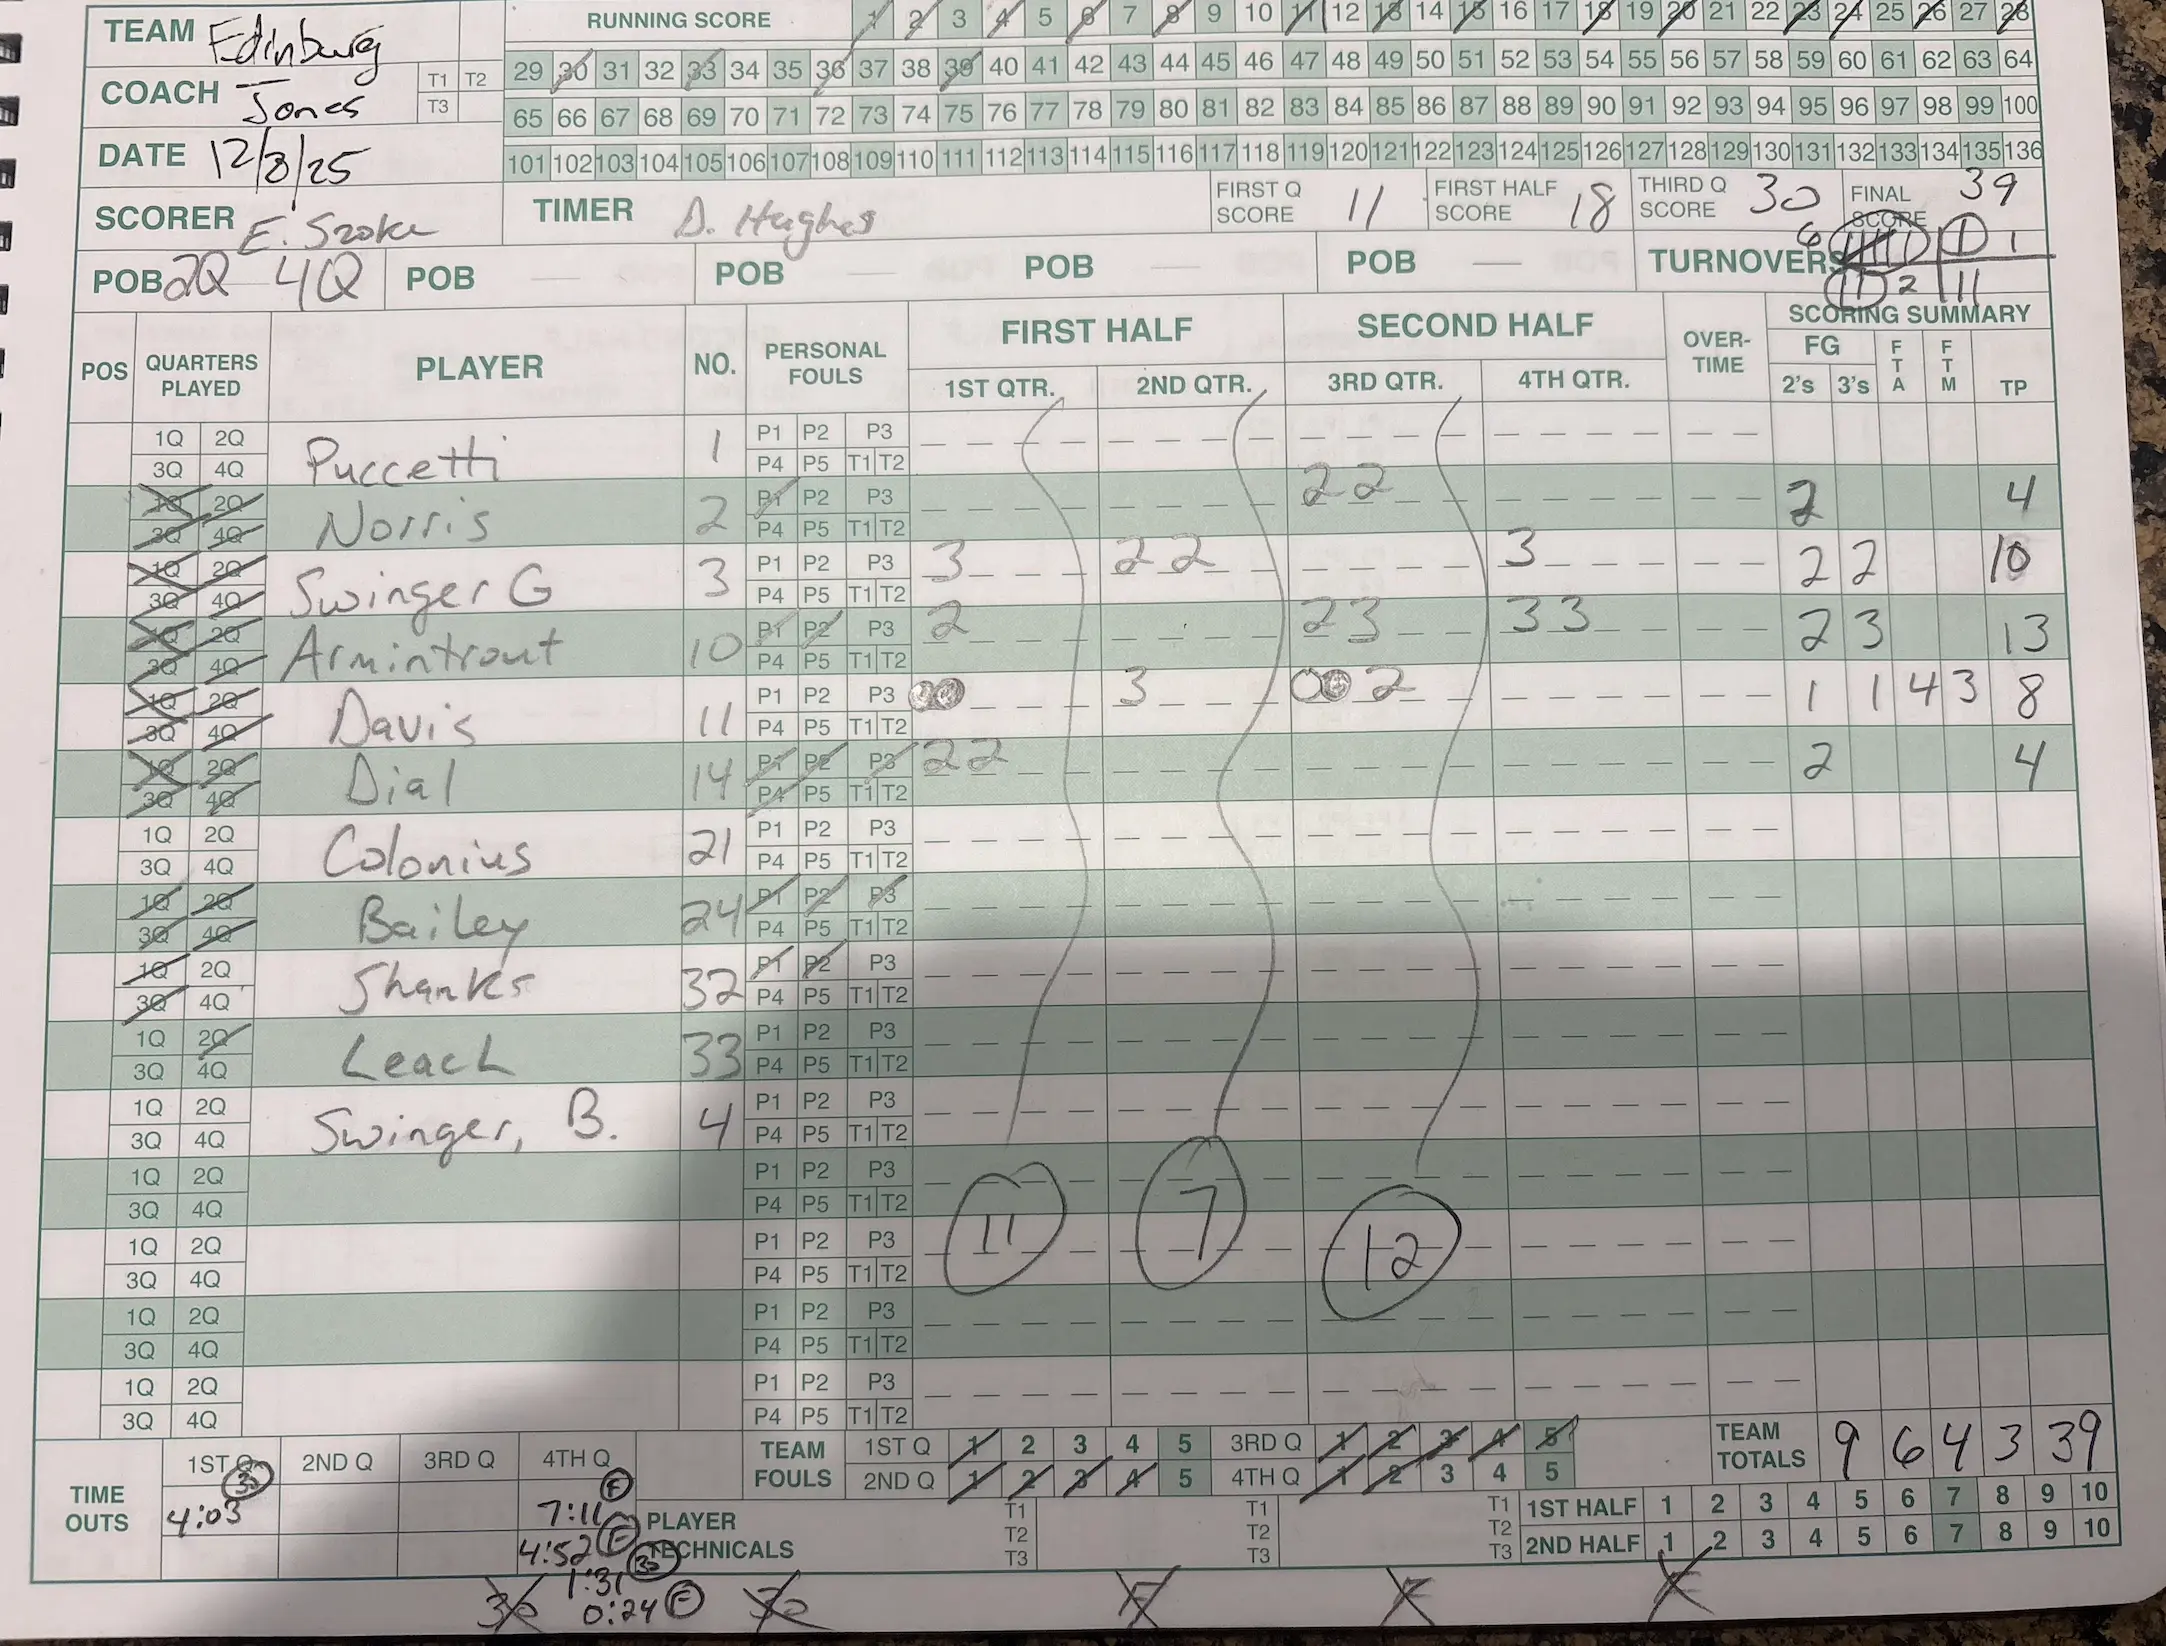 TEAM Edinburg
RUNNING SCORE 1 2 3 4 5 6 7 8 9 10 11 12 13 14 15 16 17 18 19 20 21 22 23 24 25 26 27 28
COACH Jones T1 T2 T3
29 30 31 32 33 34 35 36 37 38 39 40 41 42 43 44 45 46 47 48 49 50 51 52 53 54 55 56 57 58 59 60 61 62 63 64
65 66 67 68 69 70 71 72 73 74 75 76 77 78 79 80 81 82 83 84 85 86 87 88 89 90 91 92 93 94 95 96 97 98 99 100
DATE 12/8/25
101 102 103 104 105 106 107 108 109 110 111 112 113 114 115 116 117 118 119 120 121 122 123 124 125 126 127 128 129 130 131 132 133 134 135 136
SCORER E. Szoke TIMER D. Hughes FIRST Q SCORE 11 FIRST HALF SCORE 18 THIRD Q SCORE 30 FINAL SCORE 39
POB 2Q 4Q POB — POB — POB — POB — TURNOVERS 6 1 1 2 11
POS QUARTERS PLAYED PLAYER NO. PERSONAL FOULS FIRST HALF SECOND HALF OVER-TIME SCORING SUMMARY
1ST QTR. 2ND QTR. 3RD QTR. 4TH QTR. FG 2's 3's FTA FTM TP
1Q 2Q Puccetti 1 P1 P2 P3
3Q 4Q P4 P5 T1 T2
1Q 2Q Norris 2 P1 P2 P3 2 2 2 4
3Q 4Q P4 P5 T1 T2
1Q 2Q Swinger G 3 P1 P2 P3 3 2 2 3 2 2 10
3Q 4Q P4 P5 T1 T2
1Q 2Q Armintrout 10 P1 P2 P3 2 2 3 3 3 2 3 13
3Q 4Q P4 P5 T1 T2
1Q 2Q Davis 11 P1 P2 P3 3 2 1 1 4 3 8
3Q 4Q P4 P5 T1 T2
1Q 2Q Dial 14 P1 P2 P3 2 2 2 4
3Q 4Q P4 P5 T1 T2
1Q 2Q Colonius 21 P1 P2 P3
3Q 4Q P4 P5 T1 T2
1Q 2Q Bailey 24 P1 P2 P3
3Q 4Q P4 P5 T1 T2
1Q 2Q Shanks 32 P1 P2 P3
3Q 4Q P4 P5 T1 T2
1Q 2Q Leach 33 P1 P2 P3
3Q 4Q P4 P5 T1 T2
1Q 2Q Swinger, B. 4 P1 P2 P3
3Q 4Q P4 P5 T1 T2
1Q 2Q P1 P2 P3
3Q 4Q P4 P5 T1 T2
1Q 2Q P1 P2 P3 11 7 12
3Q 4Q P4 P5 T1 T2
1Q 2Q P1 P2 P3
3Q 4Q P4 P5 T1 T2
1Q 2Q P1 P2 P3
3Q 4Q P4 P5 T1 T2
TIME OUTS 1ST Q 30 4:03 2ND Q 3RD Q 4TH Q F 7:11 4:52 F 1:31 30 0:24 F
TEAM FOULS 1ST Q 1 2 3 4 5 3RD Q 1 2 3 4 5
2ND Q 1 2 3 4 5 4TH Q 1 2 3 4 5
TEAM TOTALS 9 6 4 3 39
PLAYER TECHNICALS T1 T2 T3 T1 T2 T3 T1 T2 T3
1ST HALF 1 2 3 4 5 6 7 8 9 10
2ND HALF 1 2 3 4 5 6 7 8 9 10
30 30 F F F